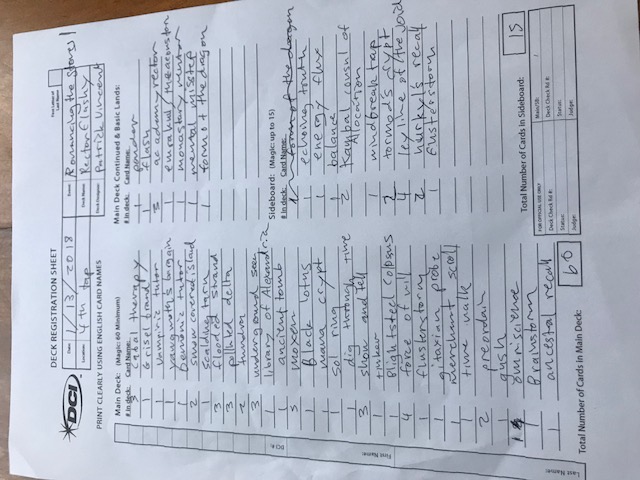 DECK REGISTRATION SHEET
DCI
Date: 1/13/2018
Location: 4th tap
Event: Romancing the stones!
Deck Name: Rector Flashy
Deck Designer: Patrick Vincent
First Letter of Last Name
PRINT CLEARLY USING ENGLISH CARD NAMES
Main Deck: (Magic: 60 Minimum)
# in deck: Card Name:
3 cabal therapy
1 Griselbrand
1 Vampiric tutor
1 yawgmoth's bargain
1 Demonic tutor
2 snow covered island
1 scalding tarn
3 flooded strand
3 polluted delta
2 tundra
3 underground sea
1 library of Alexandria
1 ancient tomb
5 moxen
1 Black lotus
1 mana crypt
1 sol ring
1 dig through time
3 show and tell
1 tinker
1 Blightsteel colosus
4 force of will
1 flusterstorm
1 gitaxian probe
1 merchant scroll
1 time walk
2 preordain
1 gush
1 omniscience
1 Brainstorm
1 ancestral recall
Total Number of Cards in Main Deck: 60
Main Deck Continued & Basic Lands:
# in deck: Card Name:
1 ponder
1 flash
3 academy rector
1 emrakul/the aeons torn
1 monastary mentor
1 mental misstep
1 form of the dragon
Sideboard: (Magic: up to 15)
# in deck: Card Name:
1 form of the dragon
1 echoing truth
1 energy flux
1 balance
2 Kambal consul of
Allocation
1 windbreak trap
2 tormod's crypt
4 leyline of the void
2 hurkyl's recall
1 flusterstorm
Total Number of Cards in Sideboard: 15
FOR OFFICIAL USE ONLY
Main/SB: /
Deck Check Rd #:
Deck Check Rd #:
Status:
Status:
Judge:
Judge:
DCI #:
First Name:
Last Name: